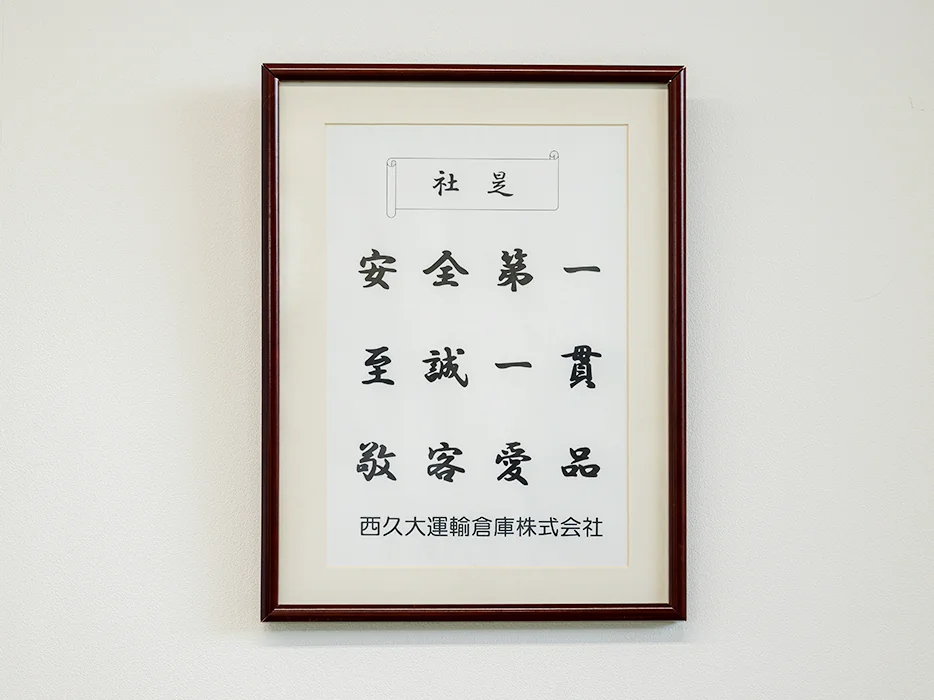 社是
安全第一
至誠一貫
敬客愛品
西久大運輸倉庫株式会社